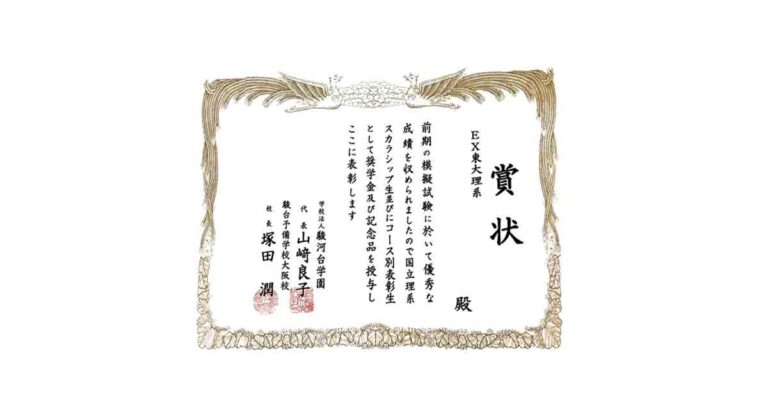 賞状
EX東大理系
殿
前期の模擬試験に於いて優秀な
成績を収められましたので国立理系
スカラシップ生並びにコース別表彰生
として奨学金及び記念品を授与し
ここに表彰します
学校法人駿河台学園
代表 山﨑良子
駿台予備学校大阪校
校長 塚田 潤